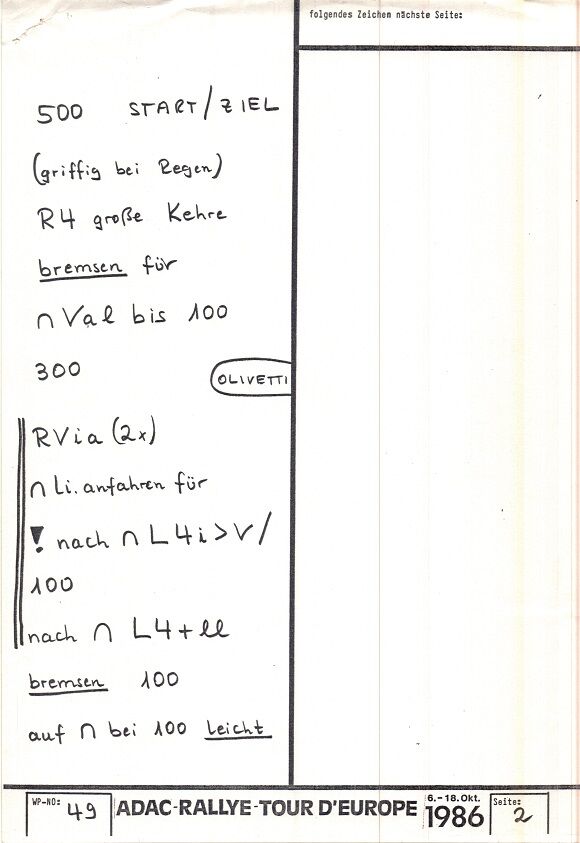 folgendes Zeichen nächste Seite:
500 START/ZIEL
(griffig bei Regen)
R4 große Kehre
bremsen für
∩ Val bis 100
300
OLIVETTI
RVia (2x)
∩ Li. anfahren für
! nach ∩ L4i>V/
100
nach ∩ L4+ll
bremsen 100
auf ∩ bei 100 leicht
WP-NO: 49
ADAC-RALLYE-TOUR D'EUROPE
6.-18.Okt.
1986
Seite: 2